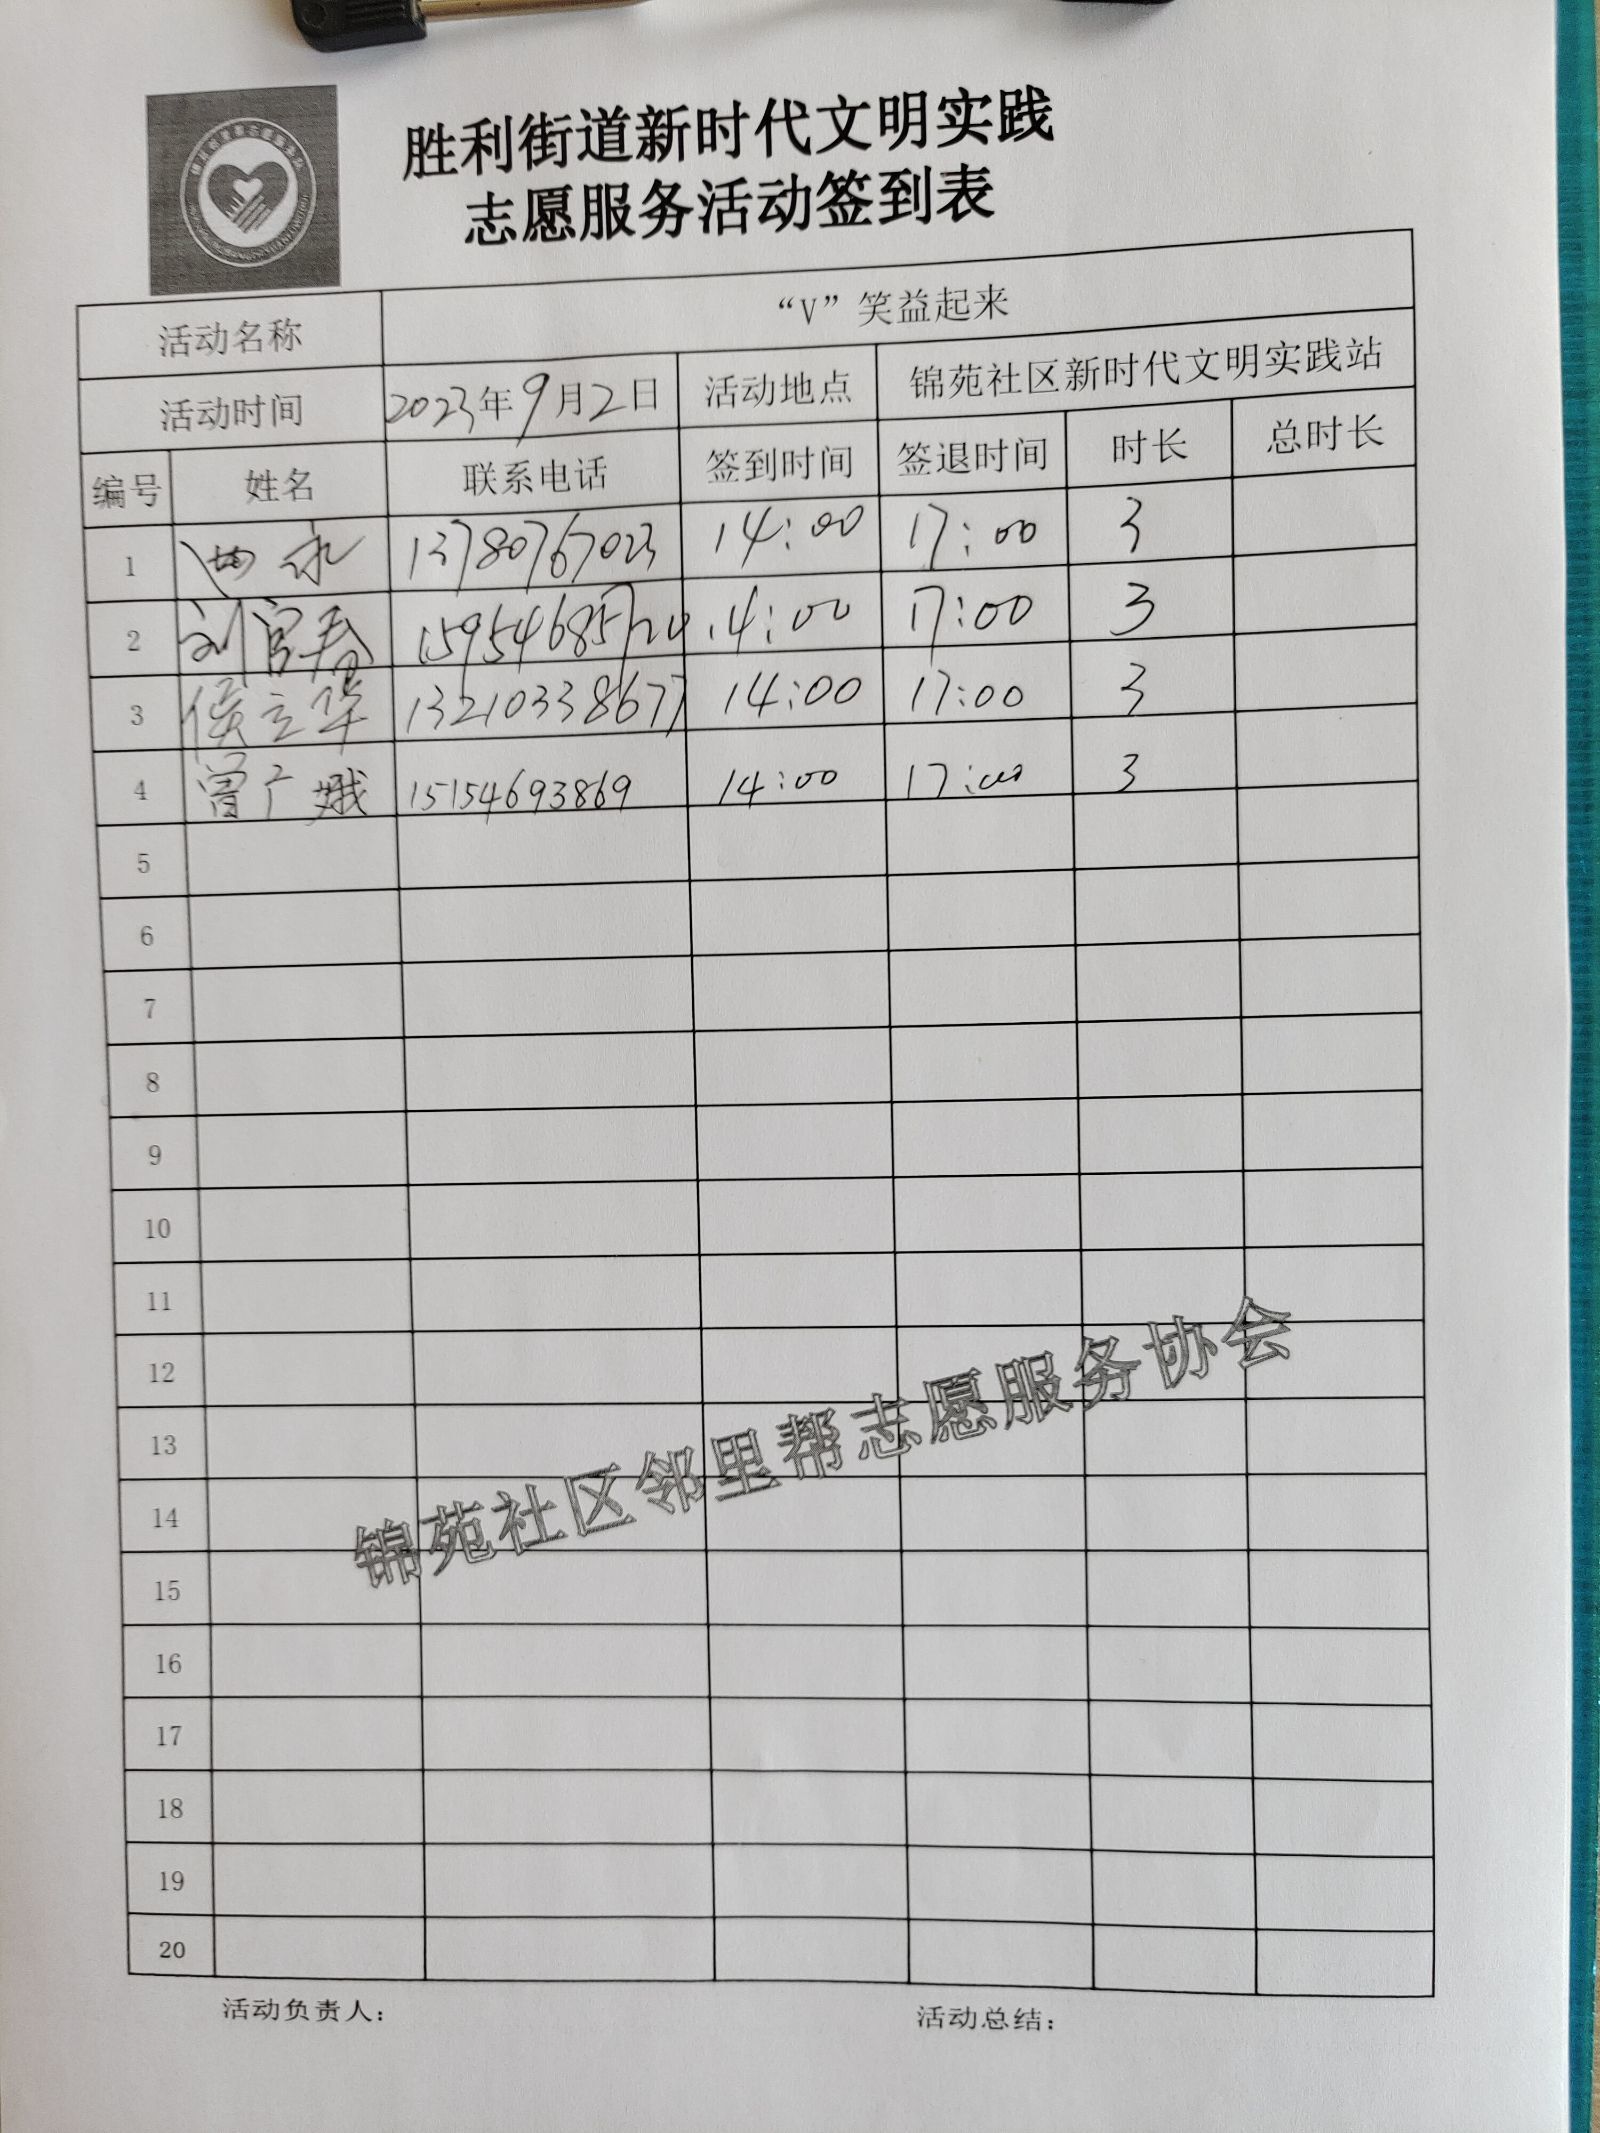 胜利街道新时代文明实践
志愿服务活动签到表
活动名称 “V”笑益起来
活动时间 2023年9月2日 活动地点 锦苑社区新时代文明实践站
编号 姓名 联系电话 签到时间 签退时间 时长 总时长
1 永 13780767023 14:00 17:00 3
2 刘官春 15954685720 14:00 17:00 3
3 侯立华 13210338677 14:00 17:00 3
4 曾广娥 15154693869 14:00 17:00 3
5
6
7
8
9
10
11
12
13
14
15
16
17
18
19
20
锦苑社区邻里帮志愿服务协会
活动负责人： 活动总结：